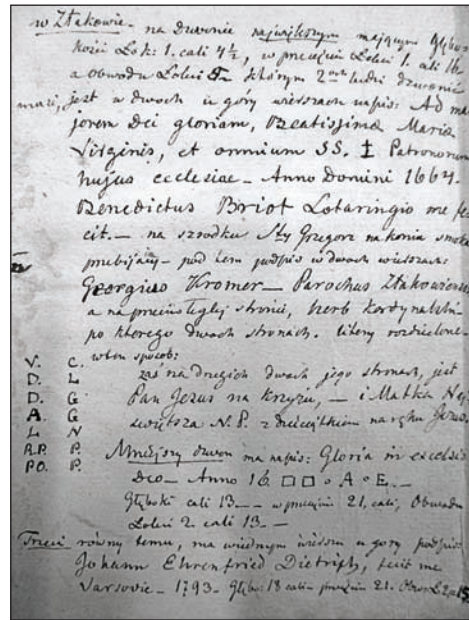 w Złakowie - na dzwonie największym mającym Głębo-
kości Łok: 1. cali 4½, w przecięciu Łokci 1. cali 16
a obwodu Łokci 5 którym 2ch ludzi dzwonić
musi, jest w dwoch u góry wierszach napis: Ad ma-
jorem Dei gloriam, Beatissimæ Mariæ
Virginis, et omnium SS. ‡ Patronorum
hujus ecclesiae - Anno Domini 1664.
Benedictus Briot Lotaringio me fe-
cit. - na szrodku Sty Grzegorz na koniu smoka
przebijający - pod tem podpis w dwoch wierszach:
Georgius Kromer - Parochus Złakoviensis
a na przeciwległej stronie, herb Kardynalski
po ktorego dwoch stronach. litery rozdzielone
w ten sposób:
V. C.
D. L
D. G
A. G
L N
R.P. P.
PO. P.
zaś na drugich dwoch jego stronach, jest
Pan Jezus na krzyżu, - i Matka Naj-
świętsza N. P. z dzieciątkiem na ręku Jezus.
Mniejszy dzwon ma napis: Gloria in excelsis
Deo - Anno 16 □ □ ∘ A ∘ E. -
Głęboki cali 13 - w przecięciu 21. cali, Obwodu
Łokci 2. cali 13. -
Trzeci równy temu, ma w iednym wierszu u gory podpis:
Johann Ehrenfried Dietrich, fecit me
Varsovie - 1793. Głęb: 18 cali - przecięciu 21. Obwo Ł 2 c 15